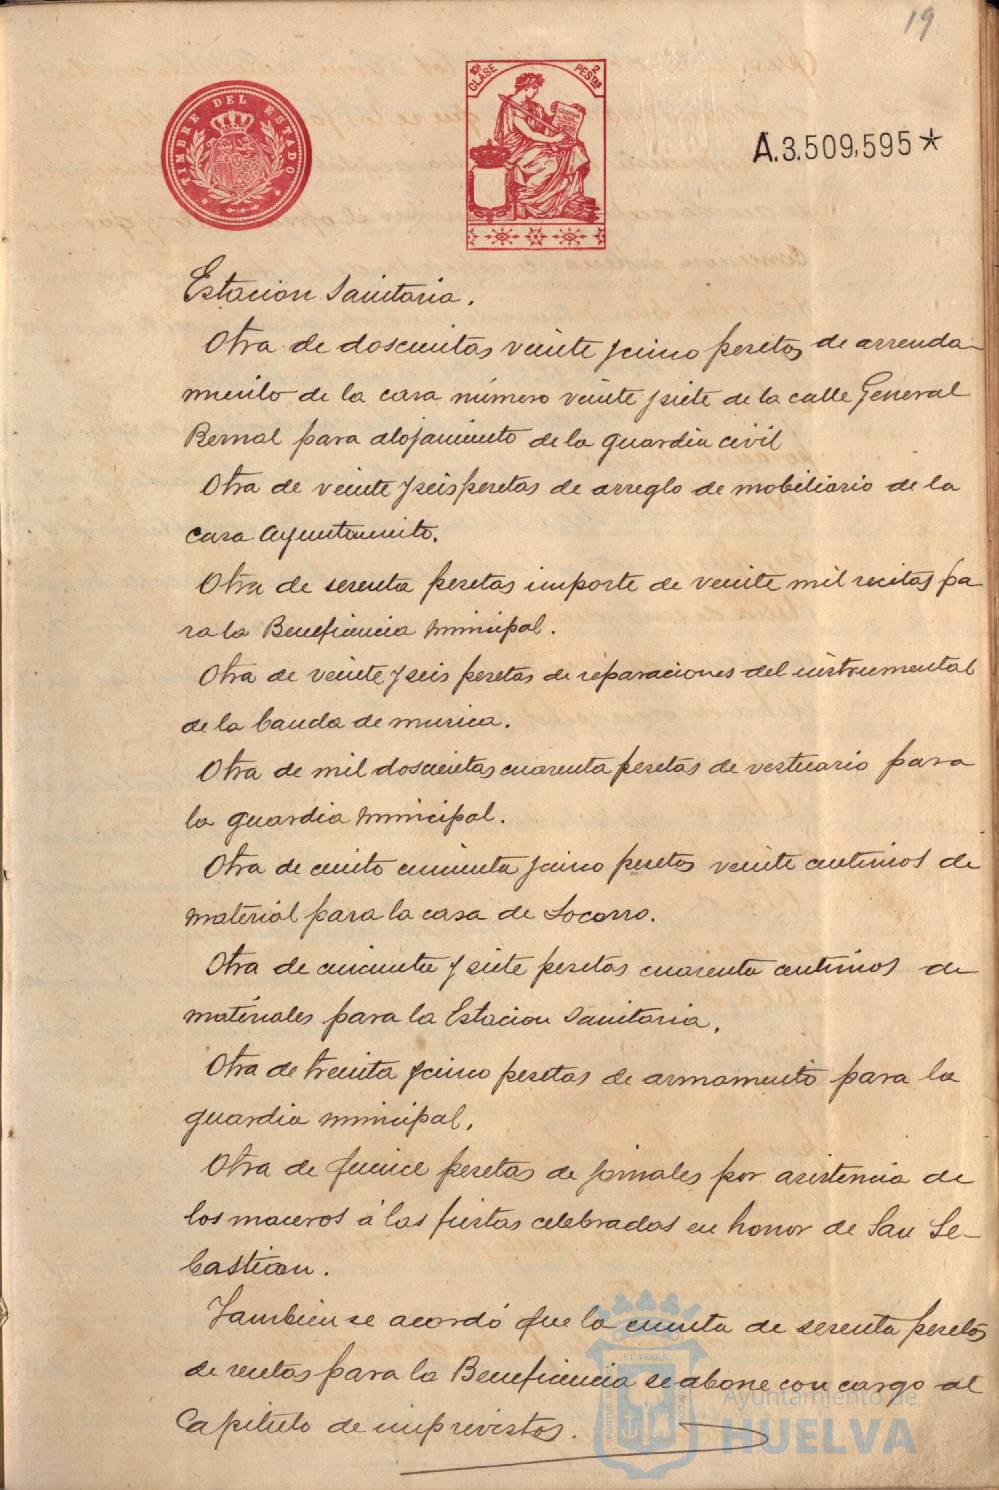 19
TIMBRE DEL ESTADO
10ª CLASE
2 PESTAS
A.3.509,595*
Estacion Sanitaria.
Otra de doscientas veinte y cinco pesetas de arrenda-
miento de la casa número veinte y siete de la calle General
Bernal para alojamiento de la guardia civil
Otra de veinte y seis pesetas de arreglo de mobiliario de la
casa Ayuntamiento.
Otra de sesenta pesetas importe de veinte mil recetas pa-
ra la Beneficencia municipal.
Otra de veinte y seis pesetas de reparaciones del instrumental
de la banda de musica.
Otra de mil doscientas cuarenta pesetas de vestuario para
la guardia municipal.
Otra de ciento cincuenta y cinco pesetas veinte centimos de
material para la casa de Socorro.
Otra de cincuenta y siete pesetas cuarenta centimos de
materiales para la Estacion Sanitaria.
Otra de treinta y cinco pesetas de armamento para la
guardia municipal.
Otra de quince pesetas de jornales por asistencia de
los maceros á las fiestas celebradas en honor de San Se-
bastian.
Tambien se acordó que la cuenta de sesenta pesetas
de recetas para la Beneficencia se abone con cargo al
Capitulo de imprevistos.
Ayuntamiento de
HUELVA